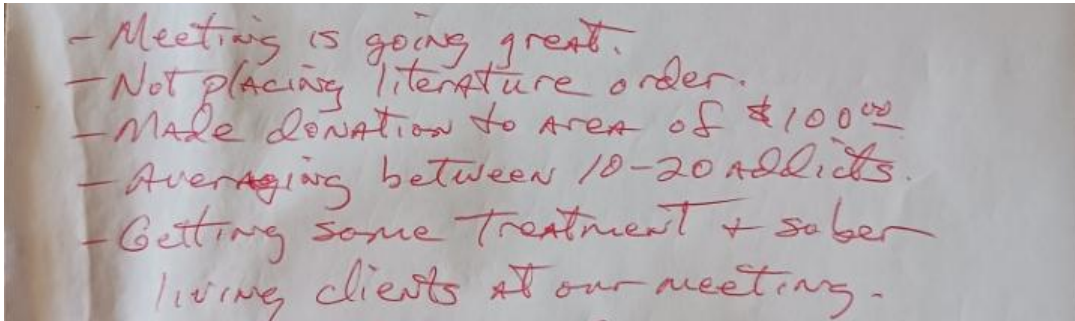 - Meeting is going great.
- Not placing literature order.
- Made donation to Area of $100.00
- Averaging between 10-20 Addicts.
- Getting some Treatment + sober
living clients at our meeting.